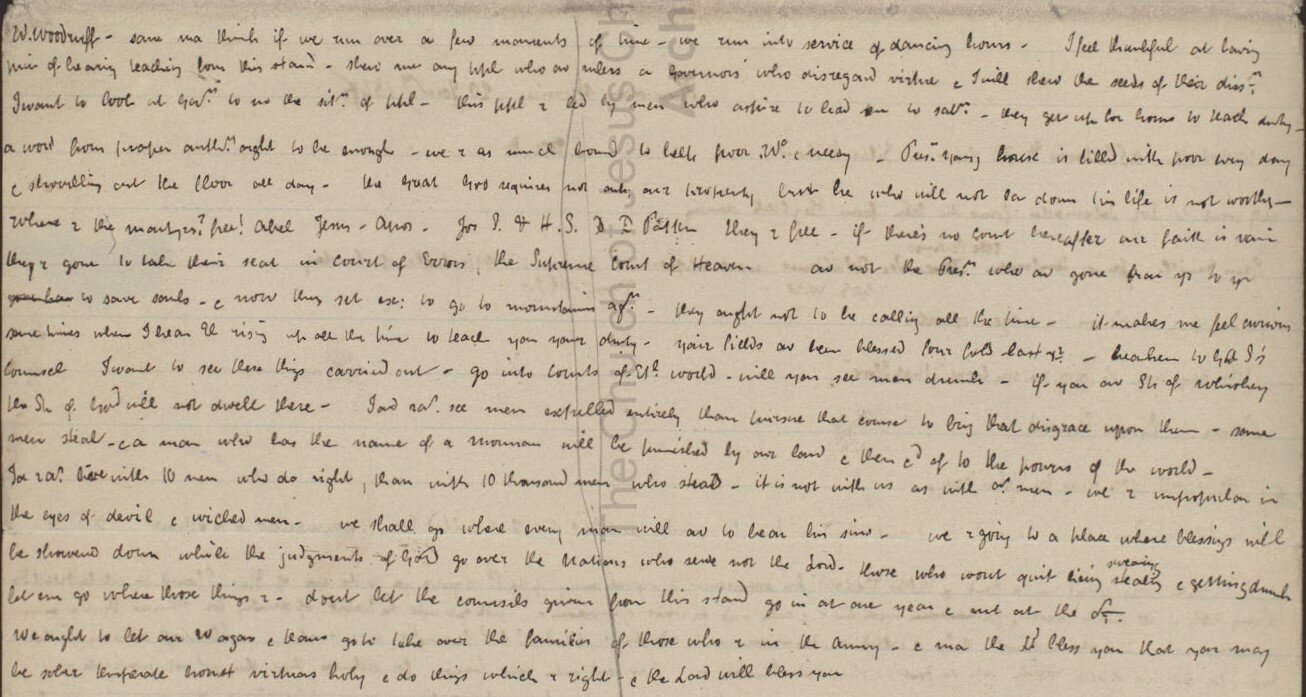 W. Woodruff - some ma think if we run over a few moments of time - we run into service of dancing hours - I feel thankful at having
priv: of hearing teaching from this stand - shew me any ppl who av rulers a governors who disregard virtue & I will shew the seeds of their diss:n
I want to look at Gov:ts to no the sit:n of ppl - this ppl r led by men who aspire to lead em to salt:n - they get up for hours to teach duty -
a word from proper auth:y ought to be enough - we r as much bound to help poor, Wo & needy - Pres: Young house is filled with poor every day
& shovelling out the floor all day - the Great God requires not only our property, but he who will not la down his life is not worthy -
where r the martyrs? free! Abel Jesus - Apos - Jos S. & H.S. D P Patten they r free - if there's no court hereafter our faith is vain
they r gone to take their seat in court of Errors, the Supreme Court of Heaven av not the Pres:t who av gone from yr to yr
to save souls - & now they set ex: to go to mountains ag:n - they ought not to be calling all the time - it makes me feel curious
some times when I hear El rising up all the time to teach you your duty - your fields av been blessed four fold last yr - hearken to God I's
counsel I want to see these things carried out - go into Courts of El: world - will you see men drunk - if you av Sh of whiskey
the Sh of God will not dwell there - I wd ra:r see men expelled entirely than pursue that course to bring that disgrace upon them - some
men steal - & a man who has the name of a mormon will be punished by our land & then &d of to the powers of the world -
Id ra:r live with 10 men who do right, than with 10 thousand men who steal - it is not with us as with or men - we r unpopular in
the eyes of devil & wicked men - we shall go where every man will av to bear his sins - we r going to a place where blessings will
be showered down while the judgments of God go over the Nations who serve not the Lord - those who wont quit lying swearing stealing & getting drunk
let em go where those things r - dont let the counsils given from this stand go in at one year & out at the or.
We ought to let our Wagons & teams go to take over the families of those who r in the army - & ma the Ld bless you that you may
be sober temperate honest virtuous holy & do things which r right - & the Lord will bless you
The Church of Jesus Ch
Arch